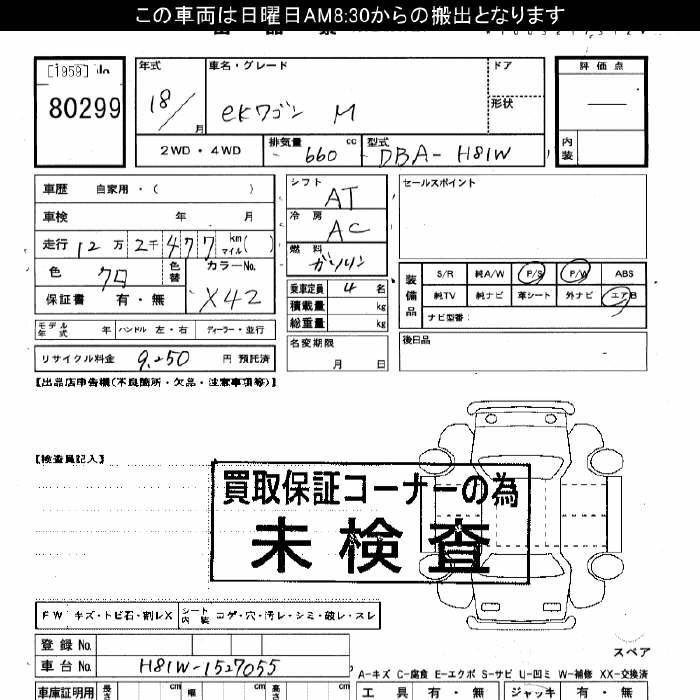 この車両は日曜日AM8:30からの搬出となります
[1959] No
80299
年式
18/
月
車名・グレード
eKワゴン M
ドア
形状
評価点
内装
2WD・4WD
排気量
660 cc
型式
DBA-H81W
車歴 自家用・( )
車検 年 月
走行 12万 2千 477 km マイル ( )
色 クロ
色替
カラーNo.
X42
保証書 有・無
モデル年式 年 ハンドル 左・右 ディーラー・並行
リサイクル料金 9,250 円 預託済
シフト
AT
冷房
AC
燃料
ガソリン
乗車定員 4 名
積載量 kg
総重量 kg
名変期限
月 日
セールスポイント
装備品
S/R 純A/W P/S P/W ABS
純TV 純ナビ 革シート 外ナビ エアB
ナビ型番:
後日品
【出品店申告欄(不良箇所・欠品・注意事項等)】
【検査員記入】
買取保証コーナーの為
未検査
FW キズ・トビ石・割レX
シート内装 コゲ・穴・汚レ・シミ・破レ・スレ
登録No.
車台No. H81W-1527055
スペア
A-キズ C-腐食 E-エクボ S-サビ U-凹ミ W-補修 XX-交換済
車庫証明用 長さ cm 幅 cm 高さ cm
工具 有・無 ジャッキ 有・無